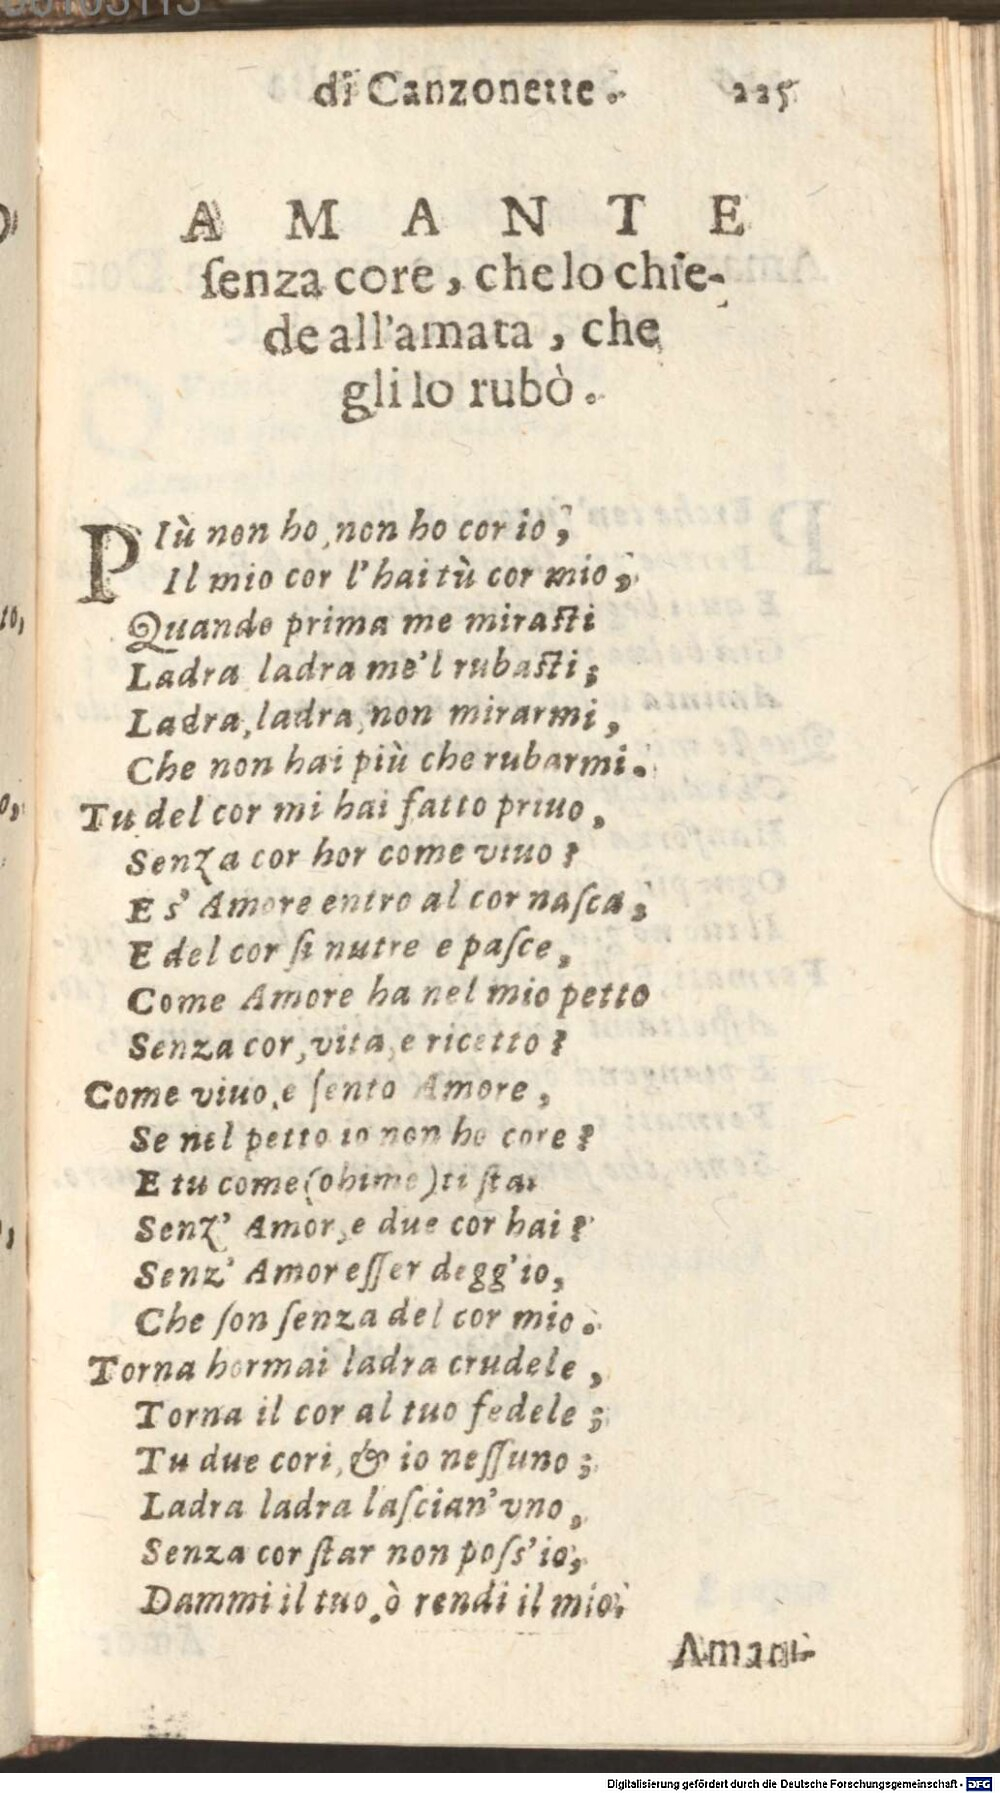 di Canzonette. 225
AMANTE
ſenza core, che lo chie-
de all'amata, che
gli lo rubò.
PIù non ho, non ho cor io;
Il mio cor l'hai tù cor mio;
Quando prima me miraſti
Ladra ladra me'l rubaſti;
Ladra, ladra, non mirarmi,
Che non hai più che rubarmi.
Tu del cor mi hai fatto priuo,
Senza cor hor come viuo?
E s' Amore entro al cor naſca,
E del cor ſi nutre e paſce,
Come Amore ha nel mio petto
Senza cor, vita, e ricetto?
Come viuo, e ſento Amore,
Se nel petto io non ho core?
E tu come (ohime) ti ſtai
Senz' Amor, e due cor hai?
Senz' Amor eſſer degg'io,
Che ſon ſenza del cor mio.
Torna hormai ladra crudele,
Torna il cor al tuo fedele;
Tu due cori, & io neſſuno;
Ladra ladra laſcian'vno,
Senza cor ſtar non poſs'io,
Dammi il tuo, ò rendi il mio.
Digitalisierung gefördert durch die Deutsche Forschungsgemeinschaft - DFG